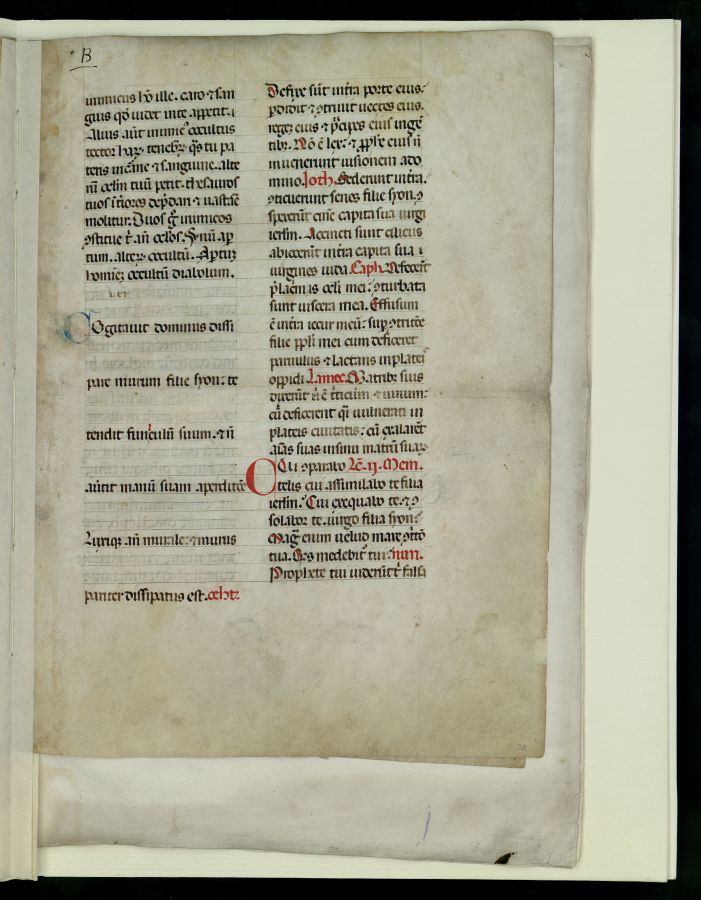 B
inimicus hō ille. caro ⁊ san
guis qđ uidet inte appetit. i
Alius aūt inimicꝰ occultus
rector haꝝ tenebꝝ. q̄s tu pa
teris in carne ⁊ sanguine. alte
rū celū tuū petit. thesauros
tuos īteriores dep̄dari ⁊ uastare
molitur. Duos gͦ inimicos
ꝯstitue tͥ an̄ oclos. Vnū ap
tum. alteꝝ occultū. Aptū
hominē. occultū diabolum.
Cogitauit dominus dissi
pare murum filie syon: te
tendit funiculū suum. ⁊ ñ
auertit manū suam aperditōe
Luxitqꝫ an̄ murale: ⁊ murus
pariter dissipatus est. Heth
Defixe sūt in terra porte eius:
ꝑdidit ⁊ ꝯtriuit uectes eius.
regeꝫ eius ⁊ p̄cipes eius in gē
tibꝫ. Nō ē lex: ⁊ ꝓphete eius ñ
inuenerunt uisionem ado
mino. Joth. Sederunt in tͥra.
ꝯticuerunt senes filie syon. ꝯ
sperserūt cinere capita sua
ierlm̄. Accincti sunt ciliciis
abiecerūt in tͥra capita sua
uirgines iuda. Caph. Defecerūt
p̄ lacͥmis oculi mei: ꝯturbata
sunt uiscera mea. Effusum
ē in tͥra iecur meū: suꝑ ꝯtritōe
filie ppli mei cum deficeret
paruulus ⁊ lactans in plateis
oppidi. Lamec. Matribꝫ suis
dixerūt ubi ē tͥticum ⁊ uinum:
cū deficerent qͣsi uulnerati in
plateis ciuitatis: cū exalarēt
aīas suas in sinu matrū suaꝝ
Cui ꝯparabo Lc̄. ij. Mem.
te lͥ cui assimilabo te filia
ierlm̄. Cui exequabo te. ⁊ ꝯ
solabor te. uirgo filia syon:
Magͣ ē enim uelud mare ꝯtͥtō
tua. Qͥs medebitͬ tui: nun.
Prophete tui uiderūt tͥ falsa
38